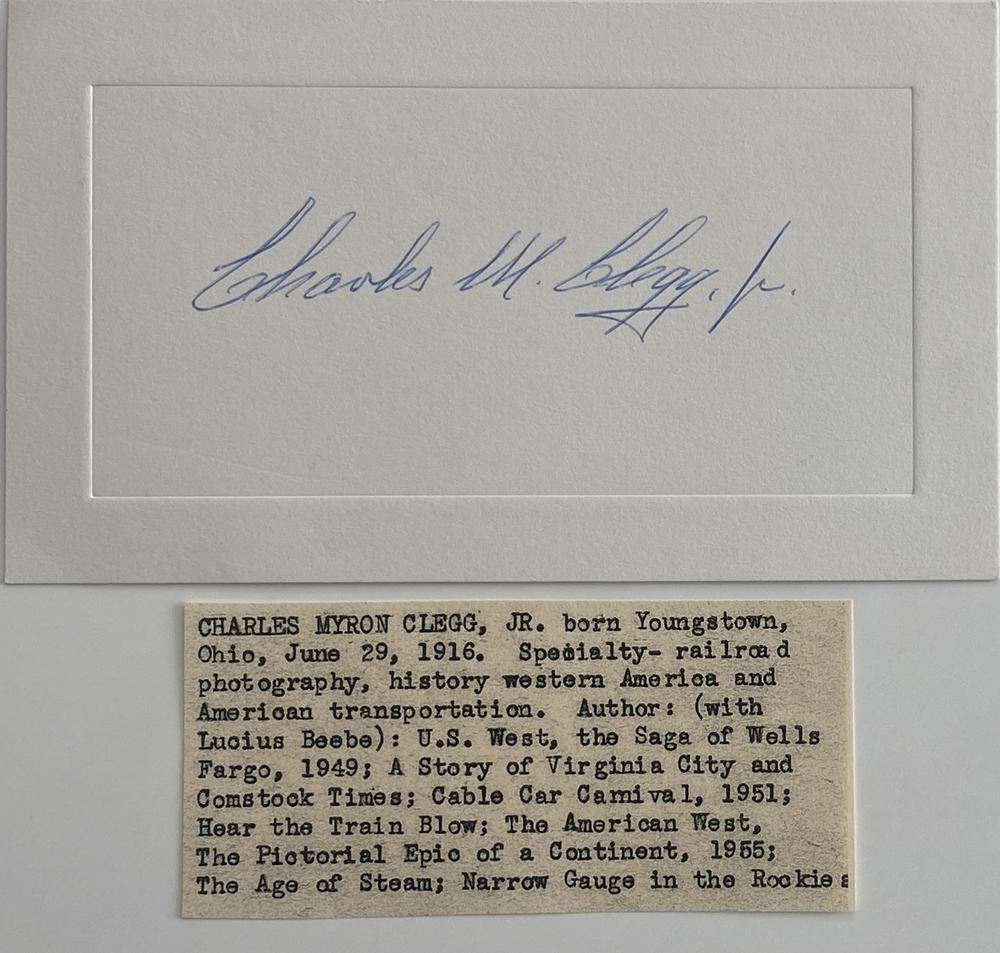 Charles M. Clegg, Jr.
CHARLES MYRON CLEGG, JR. born Youngstown,
Ohio, June 29, 1916. Specialty- railroad
photography, history western America and
American transportation. Author: (with
Lucius Beebe): U.S. West, the Saga of Wells
Fargo, 1949; A Story of Virginia City and
Comstock Times; Cable Car Carnival, 1951;
Hear the Train Blow; The American West,
The Pictorial Epic of a Continent, 1955;
The Age of Steam; Narrow Gauge in the Rockies